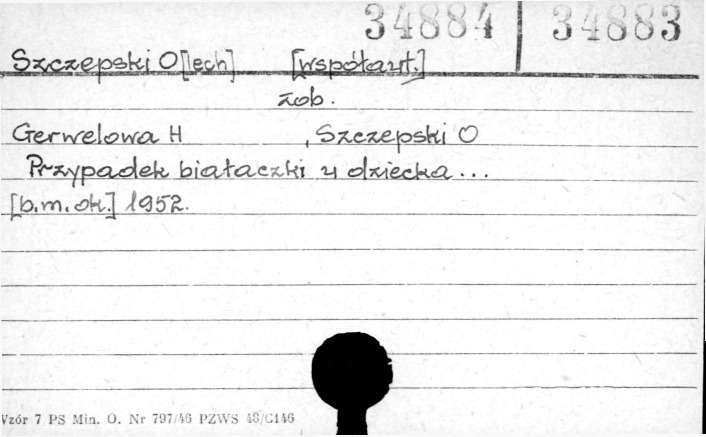 34884 34883
Szczepski O[lech] [współaut.]
zob.
Gerwelowa H , Szczepski O
Przypadek białaczki u dziecka...
[b.m.ok.] 1952.
Vzór 7 PS Min. O. Nr 797/46 PZWS 48/G146